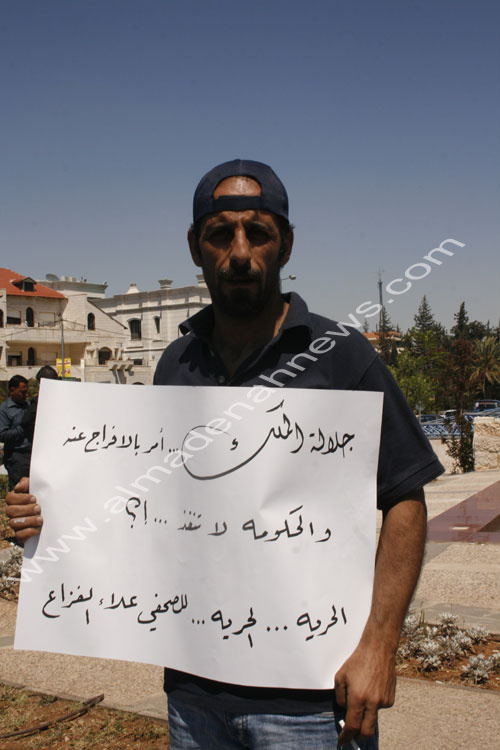 جلالة الملك ... أمر بالافراج عنه
والحكومه لا تنفذ ... !؟
الحريه ... الحريه ... للصحفي علاء الفزاع
www.almadenahnews.com